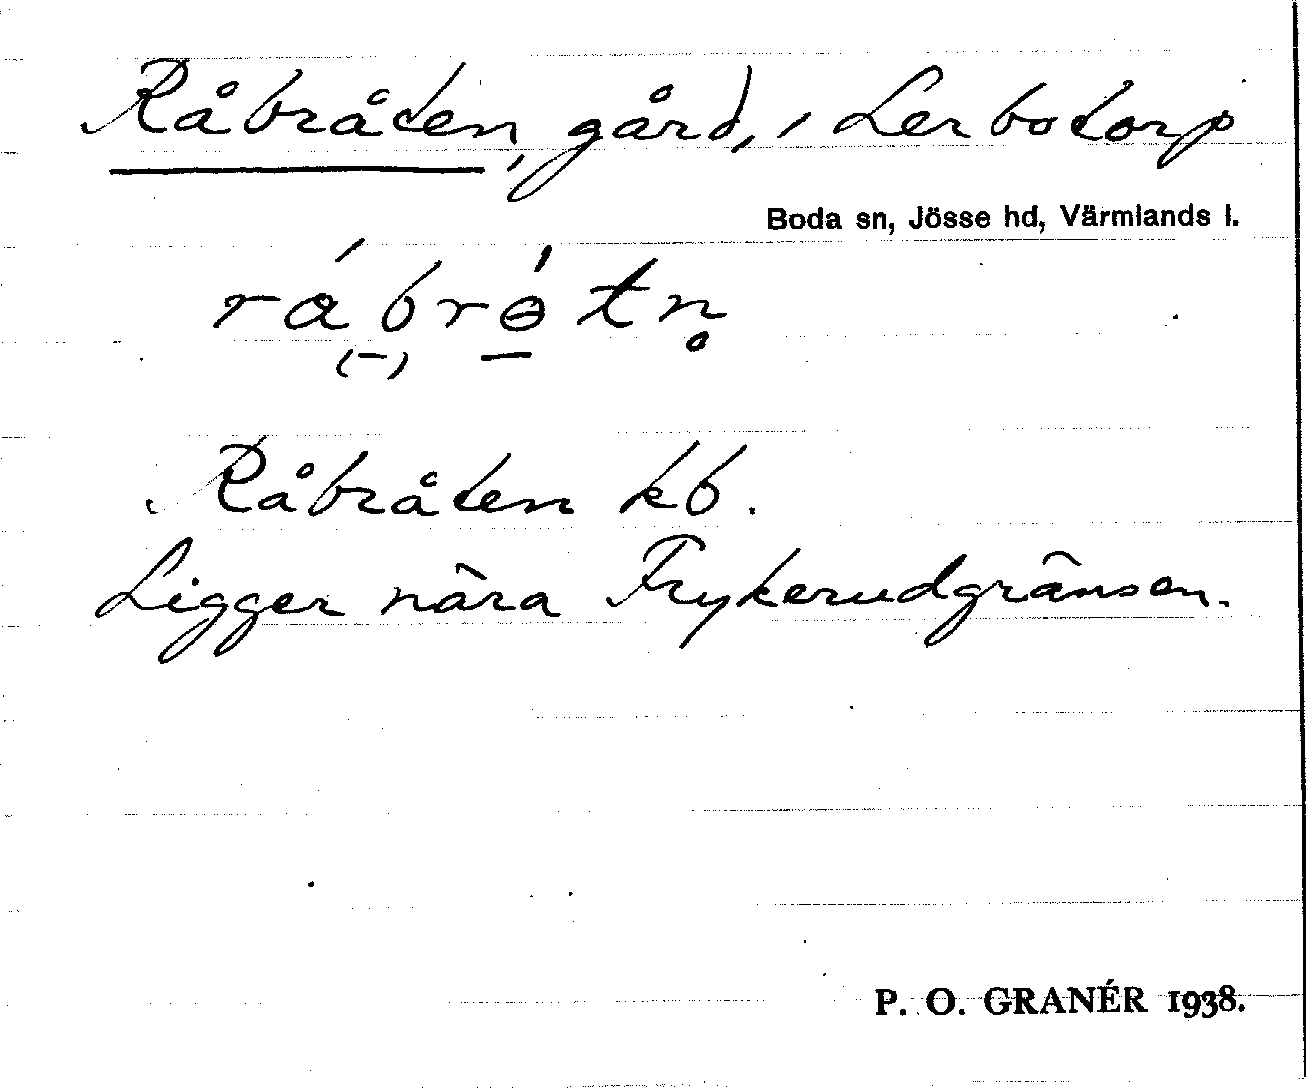 Råbråten, gård, i Lerbotorp
Boda sn, Jösse hd, Värmlands l.
rábrɵ́tn̥
Råbråten kb.
Ligger nära Frykerudgränsen.
P. O. GRANÉR 1938.